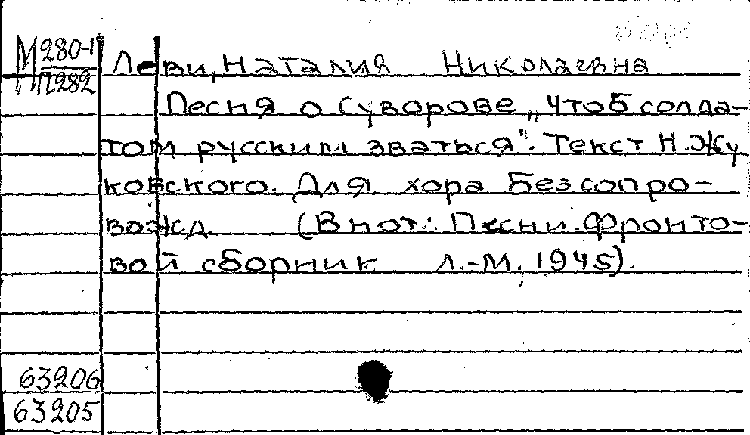 М 280-1
П282
Леви, Наталия Николаевна
Песня о Суворове „Чтоб солда-
том русским зваться". Текст Н. Жу
ковского. Для хора без сопро-
вожд. (В нот.: Песни. Фронто-
вой сборник Л.-М., 1945).
63206
63205